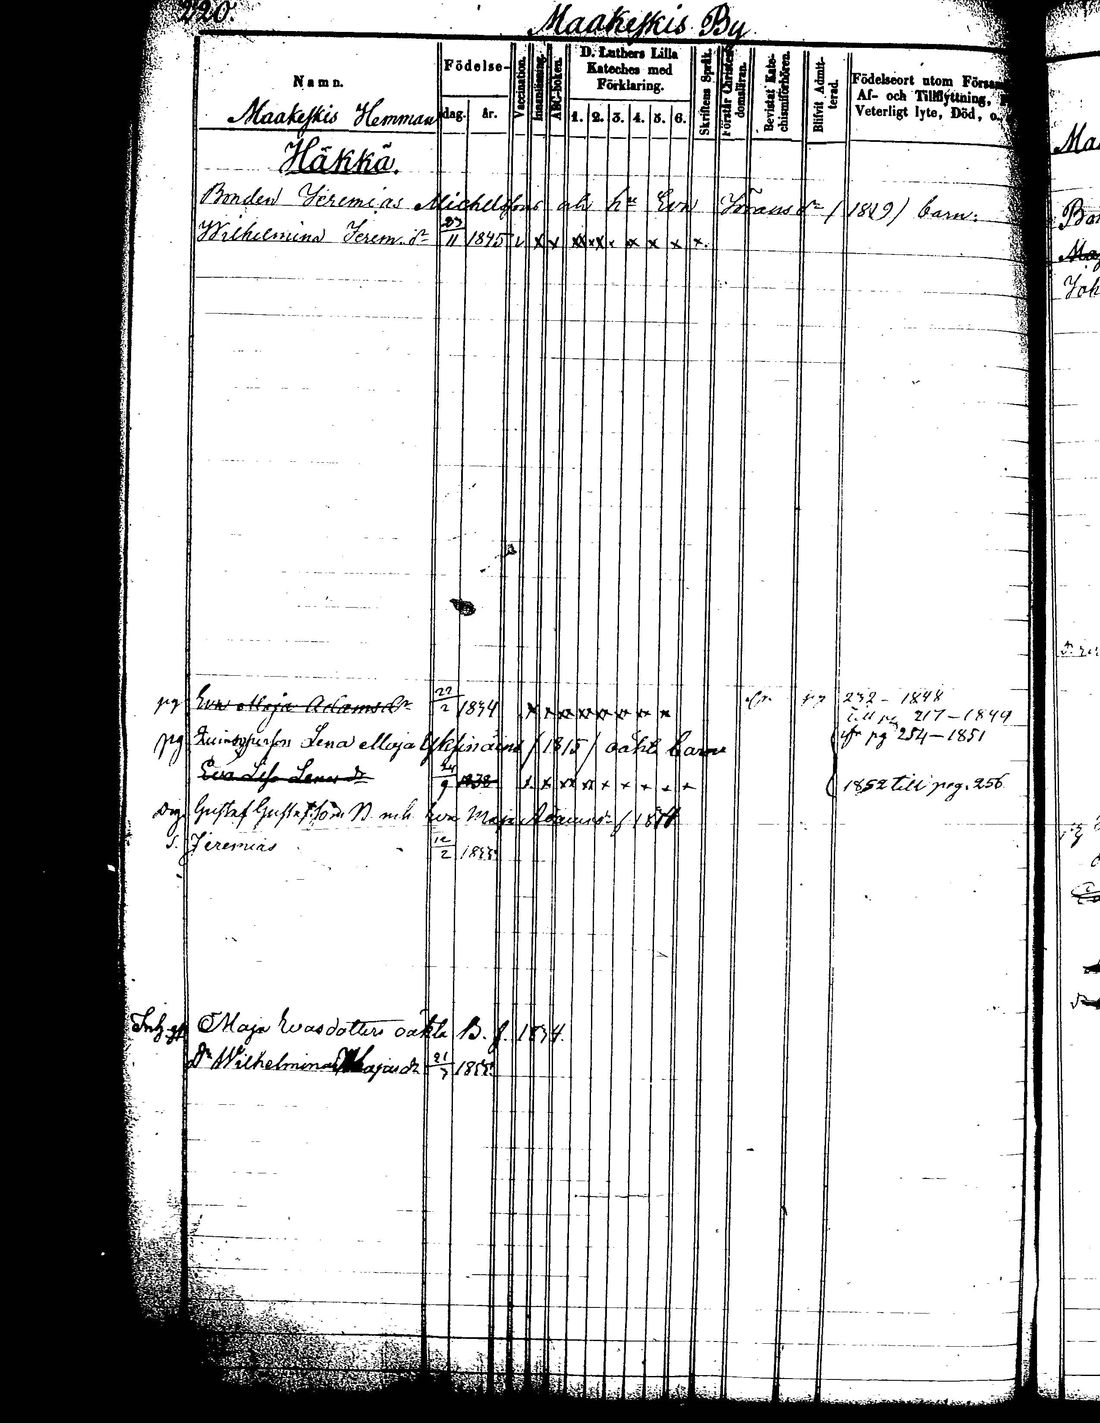 220.
Maakeskis By
Namn.
Födelse-
dag.
år.
Vaccination.
Innanläsning.
ABC-boken.
D. Luthers Lilla
Kateches med
Förklaring.
1. 2. 3. 4. 5. 6.
Skriftens Språk.
Förstår Christen-
domsläran.
Bevistat Kate-
chismiförhören.
Blifvit Admit-
terad.
Födelseort utom Försam
Af- och Tillflyttning,
Veterligt lyte, Död, o.
Maakeskis Hemman
Häkkä.
Bonden Jeremias Michelsson och hu Eva Göransdr (1819) barn:
Wilhelmina Jerem.dr 23/11 1845 v x x x x x x x x x.
pg Eva Maja Adamsdr 22/2 1834 x x x x x x x x 232 - 1848
till pg 217 - 1849
pg Qvinspersons Lena Maja (1815) oäkt barn fr pg 254 - 1851
Eva Lisa Lenaedr 9 1838 x x x x x x x x x 1852 till pag. 256
Drg. Gustaf Gustafsson och Eva Maja Adamsdr
s. Jeremias 1855
Inh. Maja Evasdotters oäkta B. f. 1834.
Dr Wilhelmina Majasdr 21/7 1855